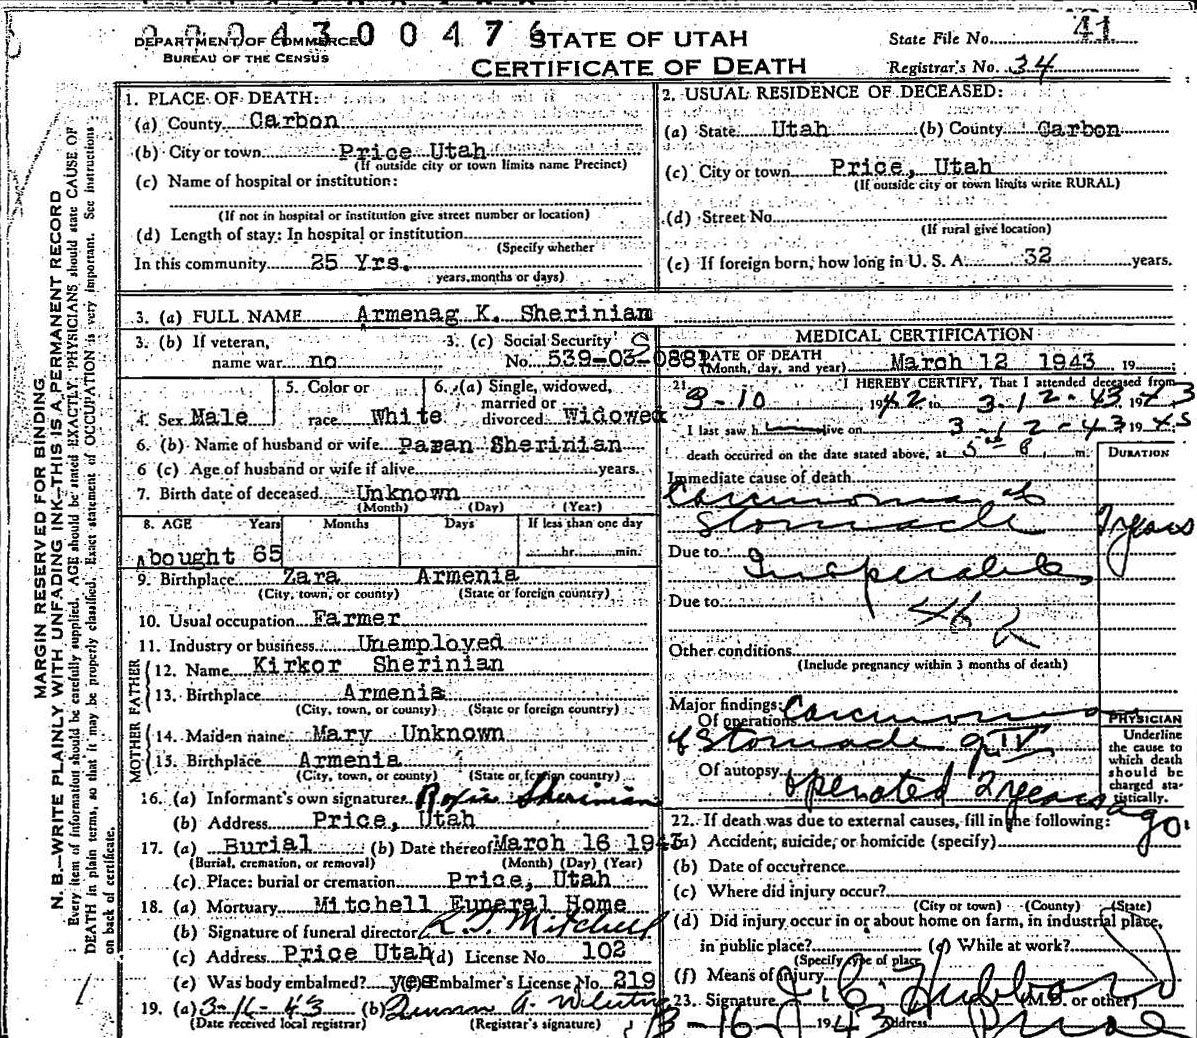 0004300476
DEPARTMENT OF COMMERCE
BUREAU OF THE CENSUS
STATE OF UTAH
CERTIFICATE OF DEATH
State File No. 41
Registrar's No. 34
MARGIN RESERVED FOR BINDING
N. B.—WRITE PLAINLY WITH UNFADING INK—THIS IS A PERMANENT RECORD
Every item of information should be carefully supplied. AGE should be stated EXACTLY. PHYSICIANS should state CAUSE OF
DEATH in plain terms, so that it may be properly classified. Exact statement of OCCUPATION is very important. See instructions
on back of certificate.
1. PLACE OF DEATH:
(a) County Carbon
(b) City or town Price Utah
(If outside city or town limits name Precinct)
(c) Name of hospital or institution:
(If not in hospital or institution give street number or location)
(d) Length of stay: In hospital or institution
(Specify whether
In this community 25 Yrs.
years, months or days)
2. USUAL RESIDENCE OF DECEASED:
(a) State Utah (b) County Carbon
(c) City or town Price, Utah
(If outside city or town limits write RURAL)
(d) Street No.
(If rural give location)
(e) If foreign born, how long in U. S. A. 32 years.
3. (a) FULL NAME Armenag K. Sherinian
3. (b) If veteran,
name war no
3. (c) Social Security
No. 539-03-0881
4. Sex Male
5. Color or
race White
6. (a) Single, widowed,
married or
divorced Widowed
6. (b) Name of husband or wife Paran Sherinian
6 (c) Age of husband or wife if alive years.
7. Birth date of deceased Unknown
(Month) (Day) (Year)
8. AGE Years Months Days If less than one day
Abought 65 hr. min.
9. Birthplace Zara Armenia
(City, town, or county) (State or foreign country)
10. Usual occupation Farmer
11. Industry or business Unemployed
FATHER
12. Name Kirkor Sherinian
13. Birthplace Armenia
(City, town, or county) (State or foreign country)
MOTHER
14. Maiden name Mary Unknown
15. Birthplace Armenia
(City, town, or county) (State or foreign country)
16. (a) Informant's own signature Roxie Sherinian
(b) Address Price, Utah
17. (a) Burial (b) Date thereof March 16 1943
(Burial, cremation, or removal) (Month) (Day) (Year)
(c) Place: burial or cremation Price, Utah
18. (a) Mortuary Mitchell Funeral Home
(b) Signature of funeral director Mitchell
(c) Address Price Utah (d) License No. 102
(e) Was body embalmed? yes Embalmer's License No. 219
19. (a) 3-16-43 (b)
(Date received local registrar) (Registrar's signature)
MEDICAL CERTIFICATION
DATE OF DEATH
(Month, day, and year) March 12 1943 19
21. I HEREBY CERTIFY, That I attended deceased from
3-10 1942 to 3-12-43 1943
I last saw h alive on 3-12-43 19
death occurred on the date stated above, at m.
DURATION
Immediate cause of death
Carcinoma of
Stomach 2 years
Due to Inoperable
Due to
46
Other conditions
(Include pregnancy within 3 months of death)
Major findings:
Of operation Carcinoma
of Stomach
Of autopsy operated 2 years ago.
PHYSICIAN
Underline
the cause to
which death
should be
charged sta-
tistically.
22. If death was due to external causes, fill in the following:
(a) Accident, suicide, or homicide (specify)
(b) Date of occurrence
(c) Where did injury occur?
(City or town) (County) (State)
(d) Did injury occur in or about home on farm, in industrial place,
in public place? (e) While at work?
(Specify type of place)
(f) Means of injury
23. Signature Hubbard (M.D. or other)
3-16-1943 Address Price